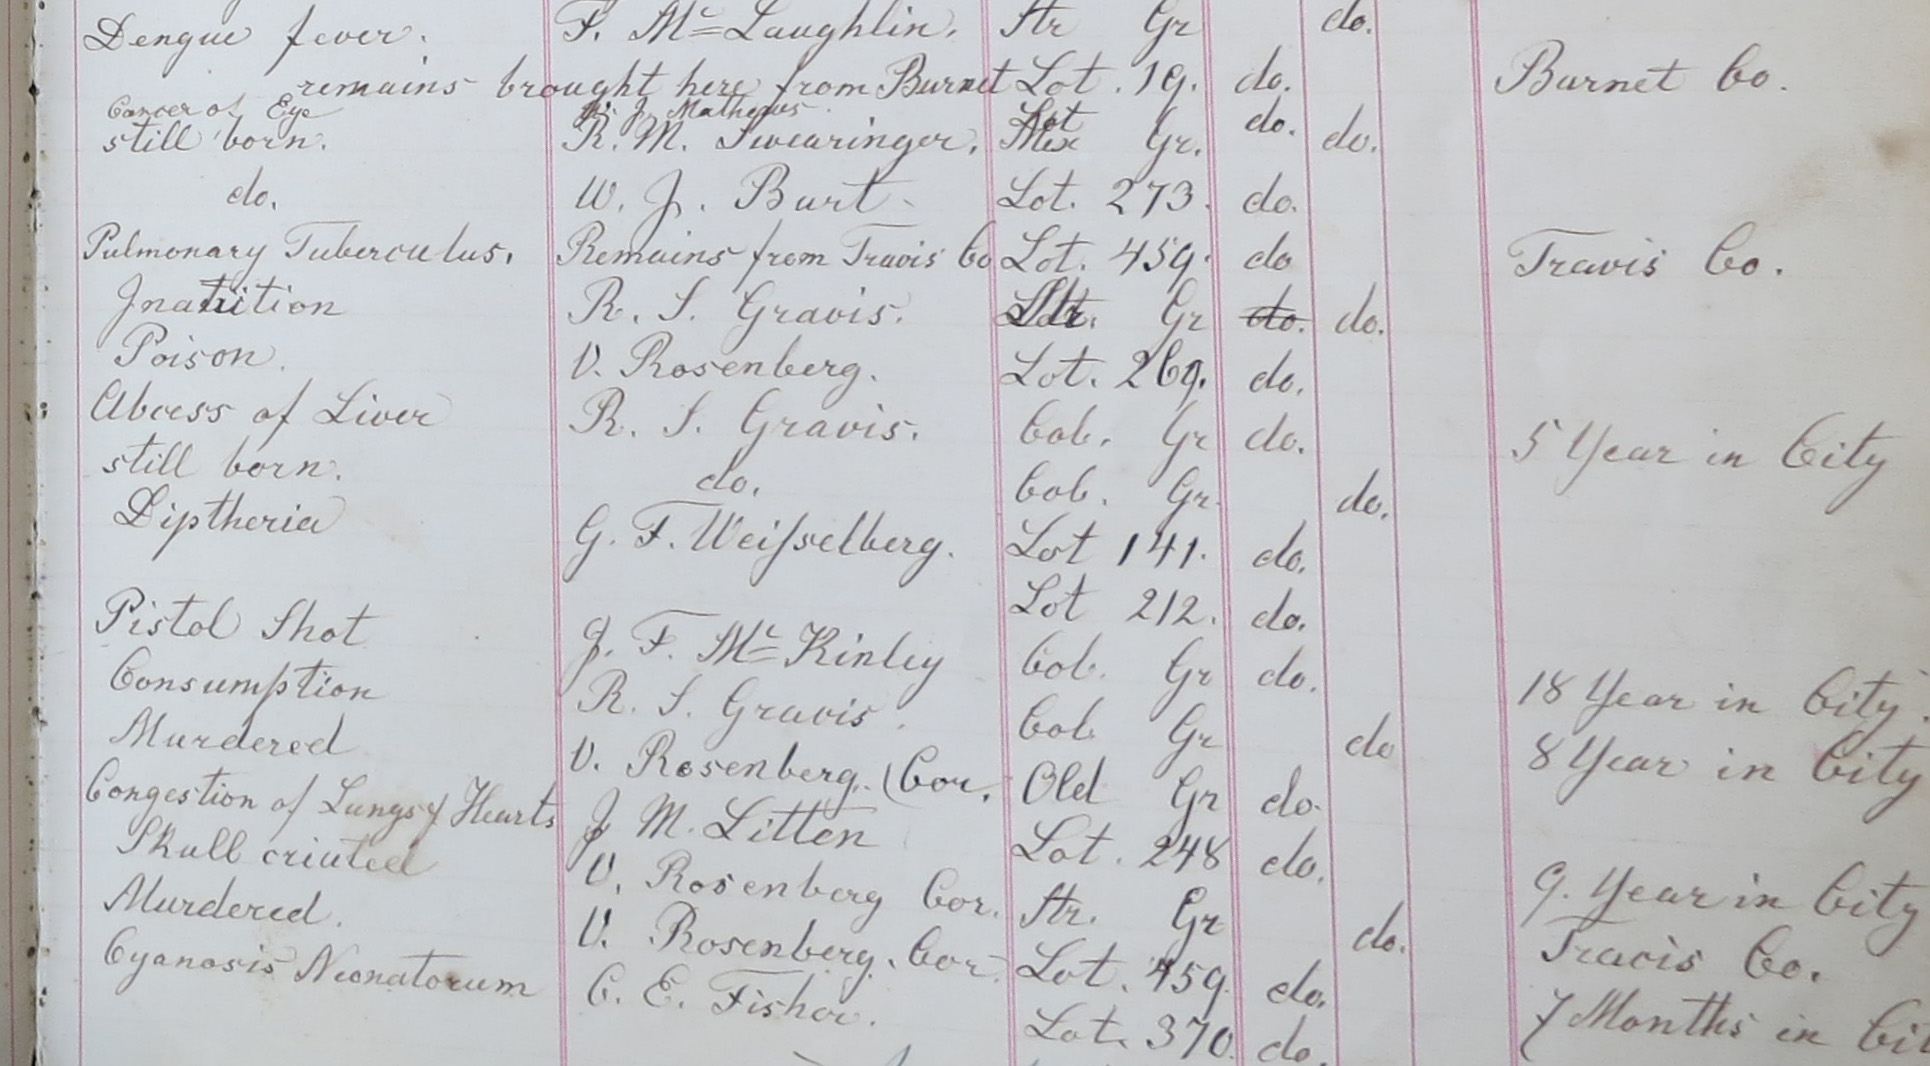 Dengue fever. F. Mc Laughlin. Str Gr do.
remains brought here from Burnet Lot. 19. do. Burnet Co.
Cancer of Eye J. Mathews Lot do.
still born. R. M. Swearinger. Mex Gr. do.
do. W. J. Burt. Lot. 273. do.
Pulmonary Tuberculus. Remains from Travis Co Lot. 459. do Travis Co.
Inatition R. S. Gravis. Str. Gr do. do.
Poison. V. Rosenberg. Lot. 269. do.
Abcess of Liver R. S. Gravis. Col. Gr do. 5 Year in City
still born. do. Col. Gr. do.
Diptheria G. F. Weisselberg. Lot 141. do.
Lot 212. do.
Pistol Shot J. F. Mc Kinley Col. Gr do. 18 Year in City.
Consumption R. S. Gravis. Col. Gr do 8 Year in City
Murdered V. Rosenberg. (Cor. Old Gr do.
Congestion of Lungs & Hearts J. M. Litten Lot. 248 do.
Skull V. Rosenberg Cor. Str. Gr do. 9. Year in City
Murdered. V. Rosenberg. Cor. Lot. 459. do. Travis Co.
Cyanosis Neonatorum C. E. Fisher. Lot. 370. do. 7 Months in Cit